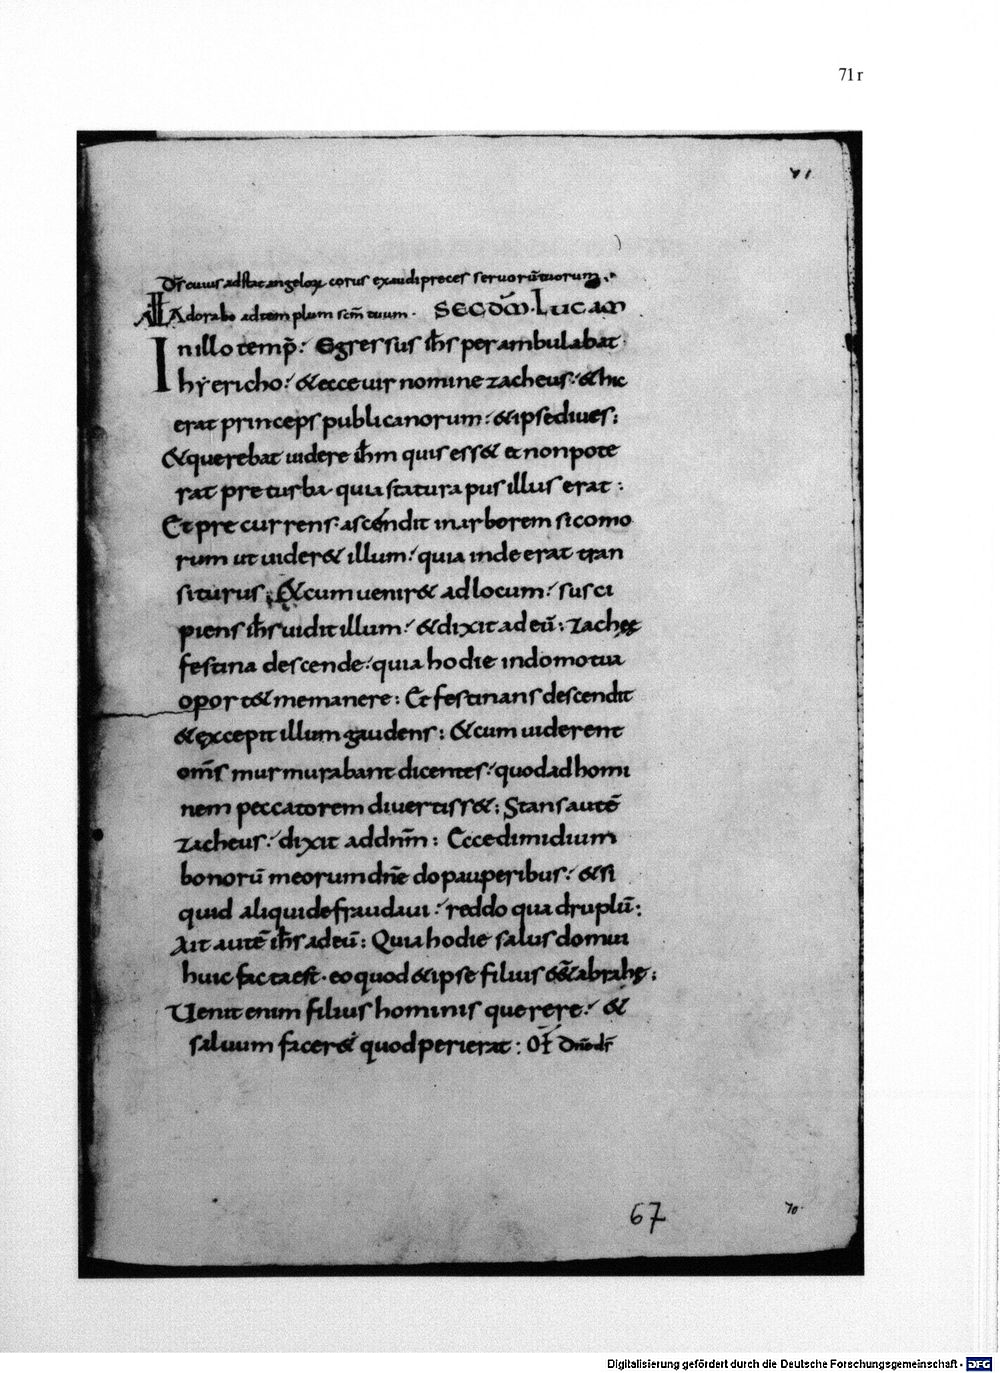 71r
71
Ds̄ cuius adstat angeloꝝ corus exaudi preces seruorū tuorum.
All Adorabo ad templum scm̄ tuum. SECDM̄. LUCAM
In illo temp̄. Egressus ih̄s perambulabat
hyericho. & ecce uir nomine zacheus. & hic
erat princeps publicanorum. & ipse diues:
& querebat uidere ih̄m quis ess& et non pote
rat pre turba quia statura pusillus erat:
Et precurrens. ascendit in arborem sicomo
rum ut uider& illum. quia inde erat tran
siturus; Et cum uenir& ad locum. susci
piens ih̄s uidit illum. & dixit ad eū: zachęę
festina descende. quia hodie in domo tua
oport& me manere: Et festinans descendit
& excepit illum gaudens: & cum uiderent
om̄s murmurabant dicentes. quod ad homi
nem peccatorem diuertiss&: Stans autē
zacheus. dixit ad dnm̄: Ecce dimidium
bonorū meorum dn̄e do pauperibus. & si
quid aliqui defraudaui. reddo quadruplū:
Ait autē ih̄s ad eū: Quia hodie salus domui
huic facta est. eo quod & ipse filius &̄ abrahę:
Uenit enim filius hominis querere. &
saluum facer& quod perierat: Of̄ Dn̄e ds̄
67
70
Digitalisierung gefördert durch die Deutsche Forschungsgemeinschaft - DFG